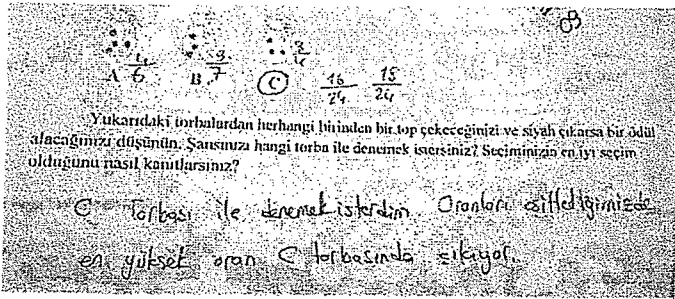 03
A 4/6 B. 3/7 C 3/4 16/24 15/24
Yukarıdaki torbalardan herhangi birinden bir top çekeceğinizi ve siyah çıkarsa bir ödül
alacağınızı düşünün. Şansınızı hangi torba ile denemek istersiniz? Seçiminizin en iyi seçim
olduğunu nasıl kanıtlarsınız?
C Torbası ile denemek isterdim. Oranları eşitlediğimizde
en yüksek oran C torbasında çıkıyor.